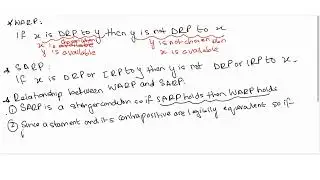 * WARP:
If x is DRP to y then y is not DRP to x
x is available y is not chosen when
y is available x is available
* SARP:
If x is DRP or IRP to y then y is not DRP or IRP to x.
* Relationship between WARP and SARP.
① SARP is a stronger condition so if SARP holds then WARP holds
② Since a stament and its contrapositive are logically equivalent so if